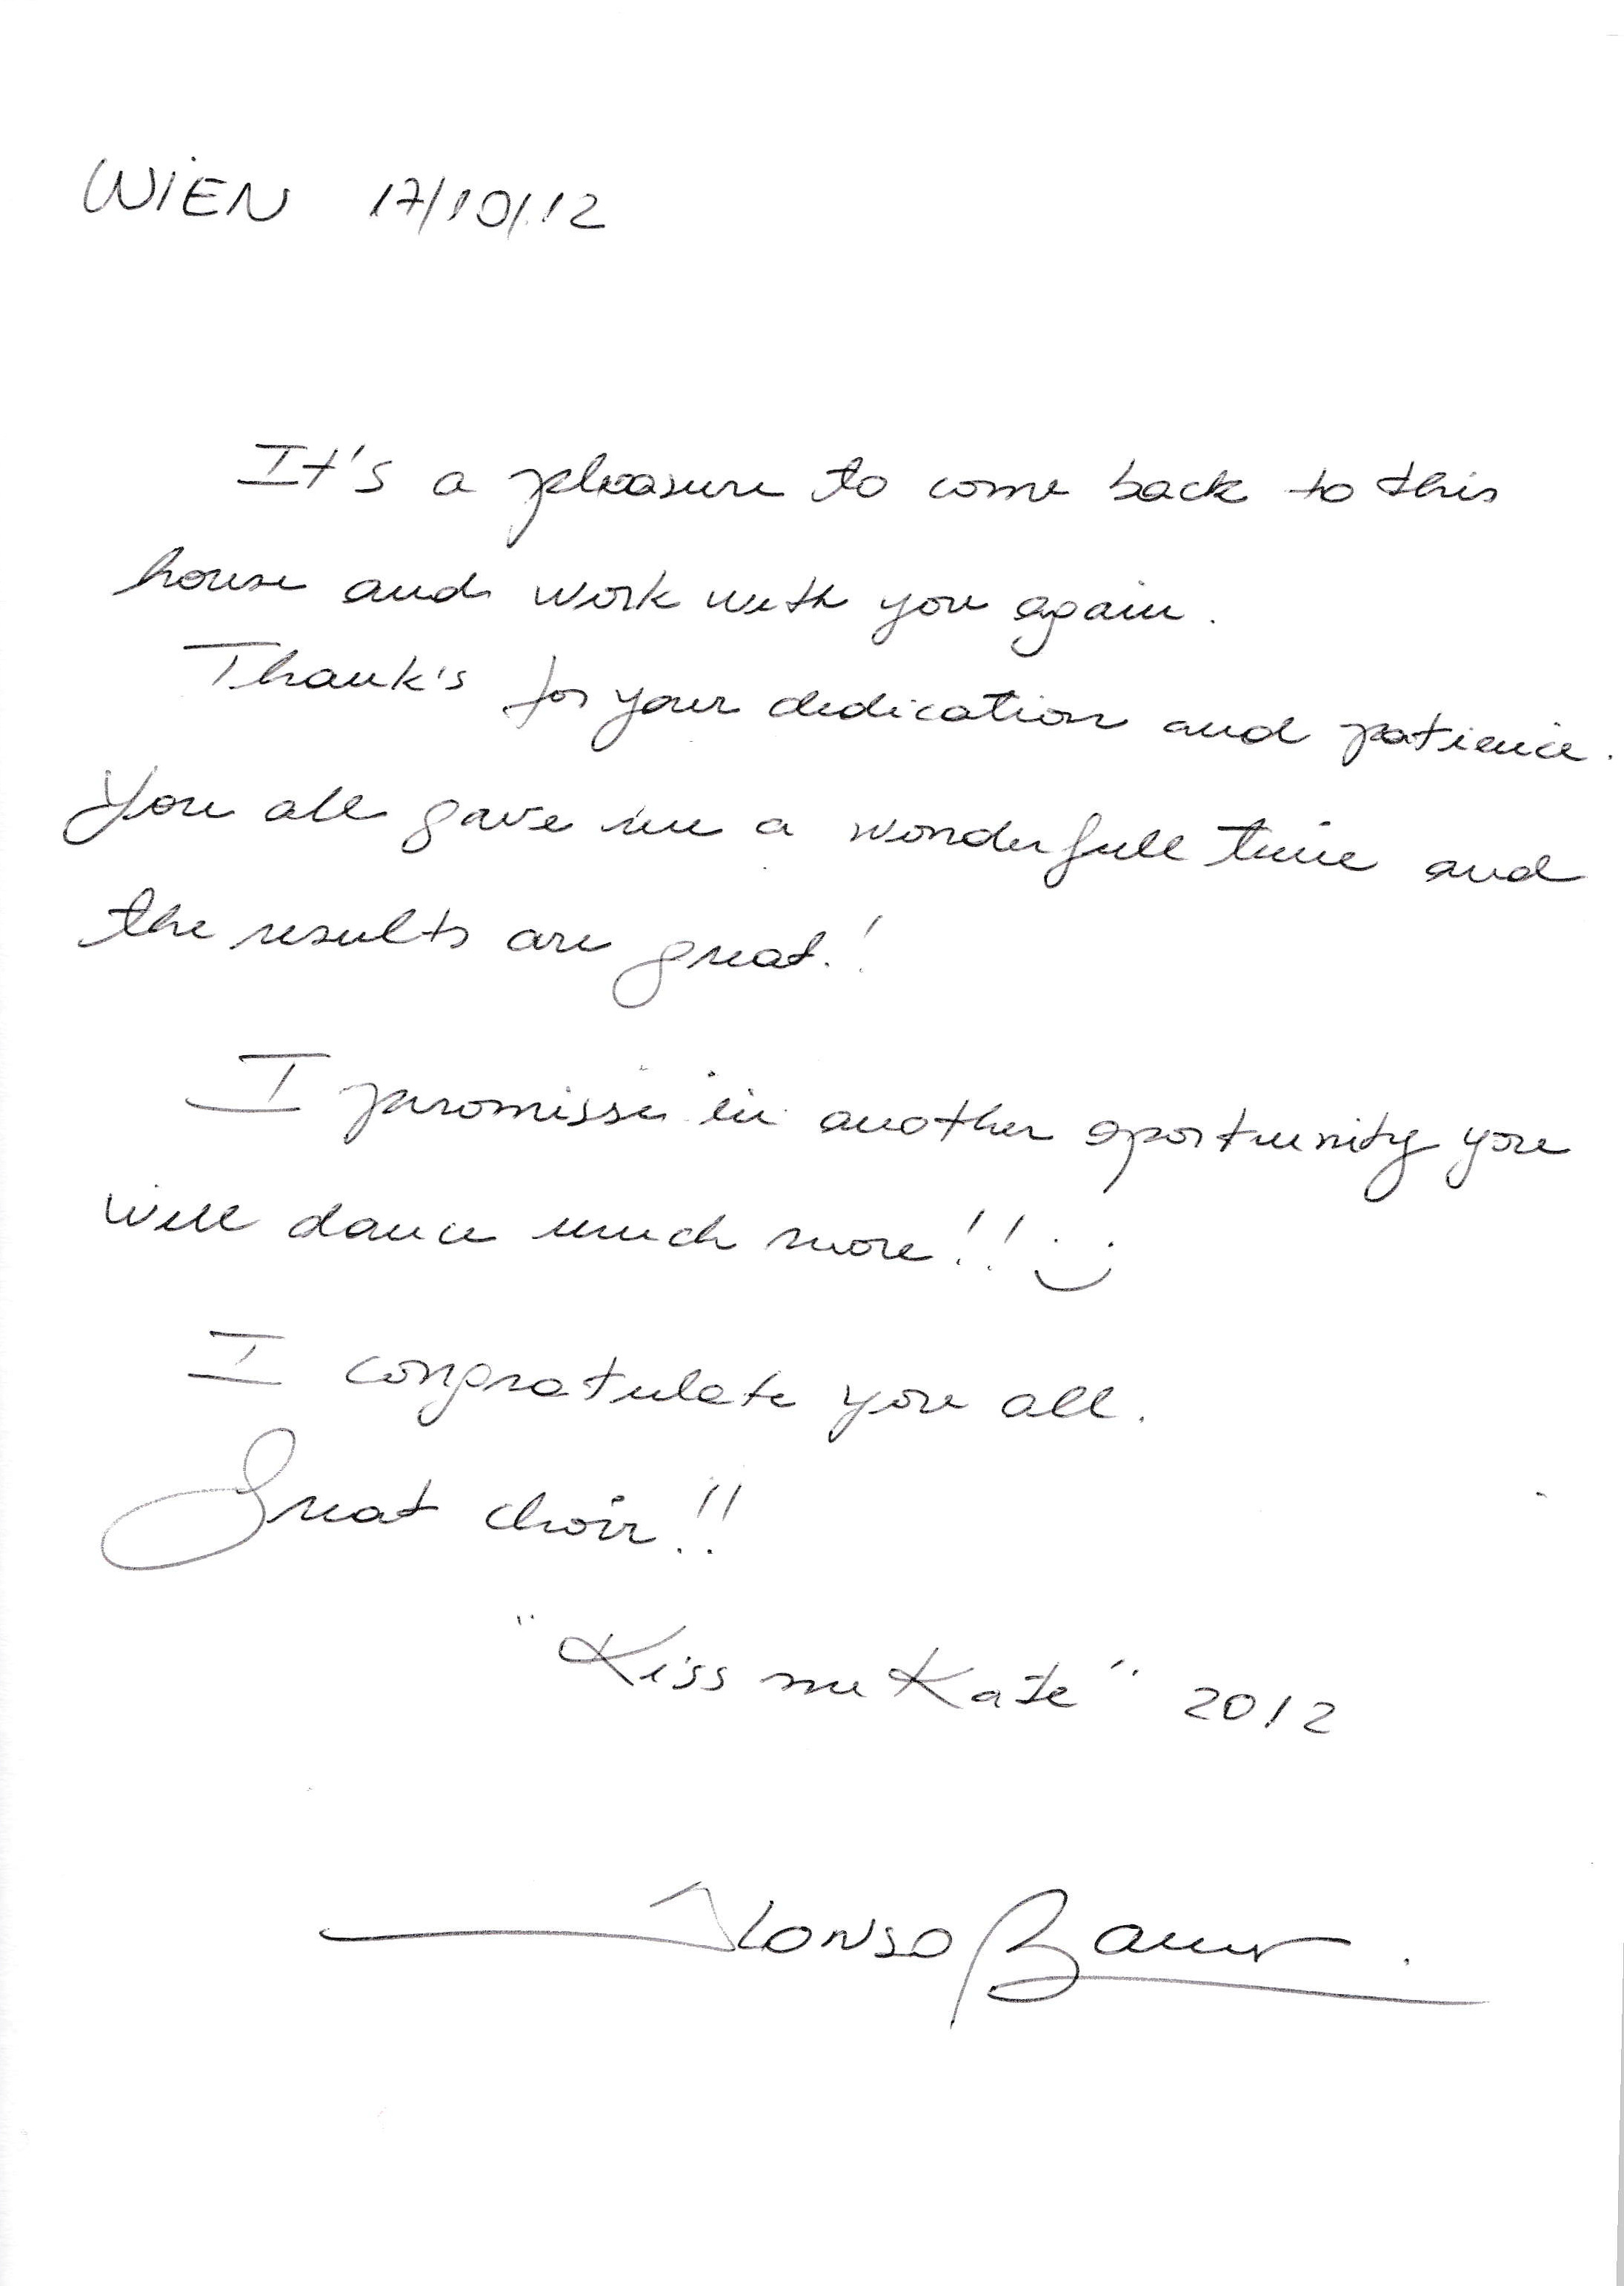 WIEN 17/10/12
It's a pleasure to come back to this
house and work with you again.
Thank's for your dedication and patience.
You all gave me a wonderfull time and
the results are great!
I promisse in another oportunity you
will dance much more!! :)
I congratulate you all.
Great choir!!
"Kiss me Kate" 2012
Alonso Barros.